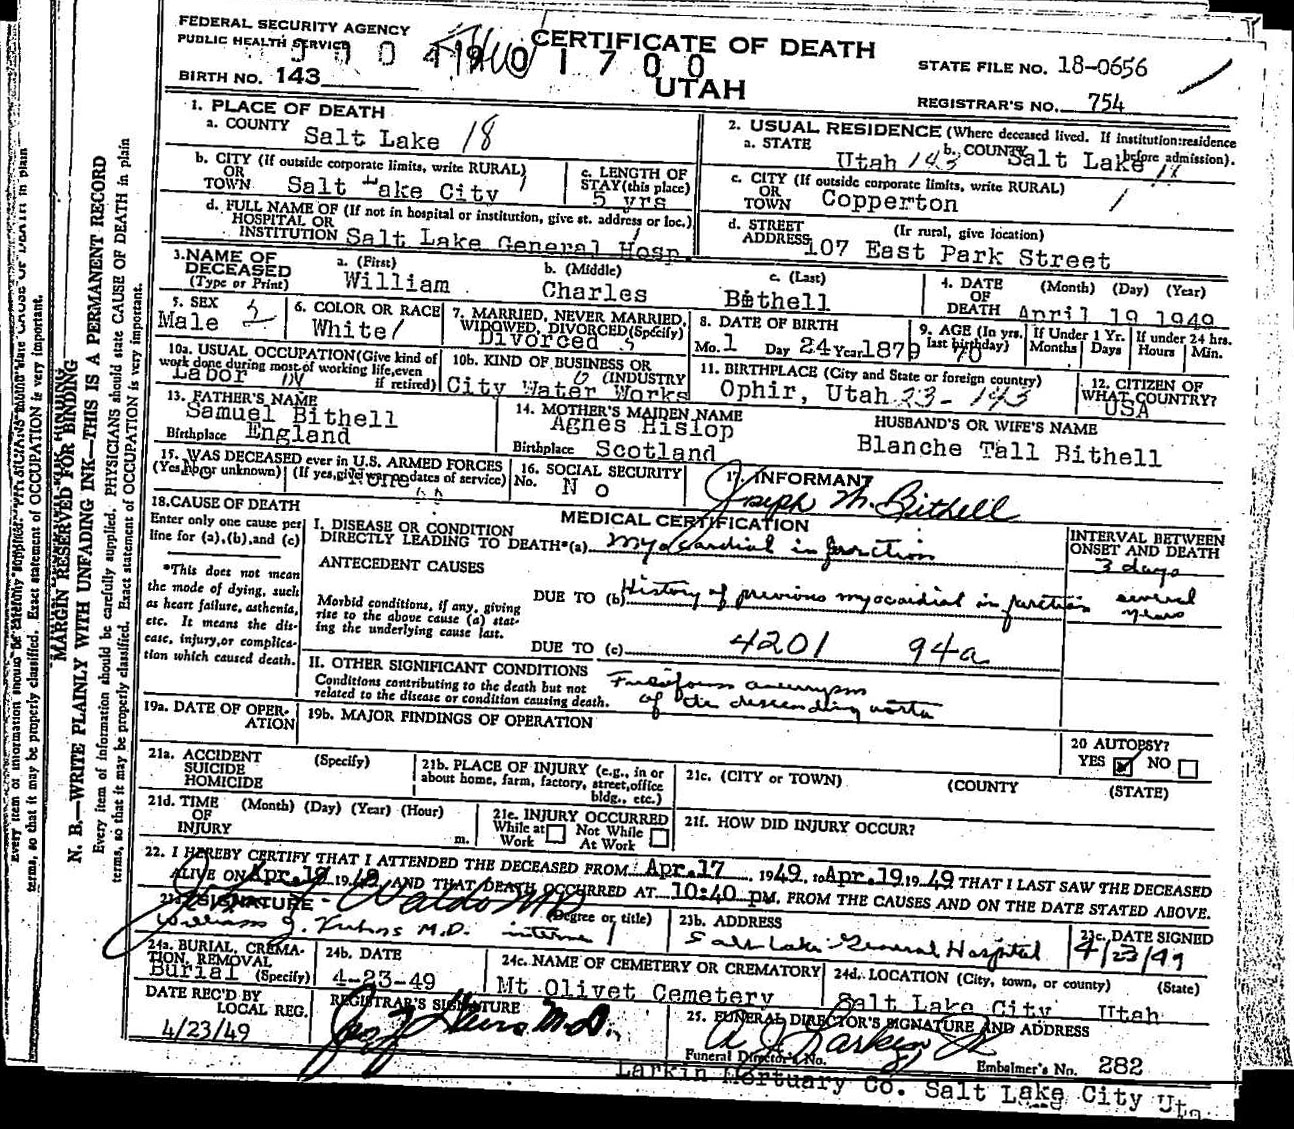 FEDERAL SECURITY AGENCY
PUBLIC HEALTH SERVICE
BIRTH NO. 143
CERTIFICATE OF DEATH
UTAH
STATE FILE NO. 18-0656
REGISTRAR'S NO. 754
1. PLACE OF DEATH
a. COUNTY Salt Lake 18
b. CITY (If outside corporate limits, write RURAL)
OR
TOWN Salt Lake City
c. LENGTH OF
STAY (this place)
5 yrs
d. FULL NAME OF (If not in hospital or institution, give st. address or loc.)
HOSPITAL OR
INSTITUTION Salt Lake General Hosp.
2. USUAL RESIDENCE (Where deceased lived. If institution:residence before admission).
a. STATE Utah 143 b. COUNTY Salt Lake
c. CITY (If outside corporate limits, write RURAL)
OR
TOWN Copperton
d. STREET (If rural, give location)
ADDRESS 107 East Park Street
3. NAME OF
DECEASED
(Type or Print)
a. (First) William
b. (Middle) Charles
c. (Last) Bithell
4. DATE (Month) (Day) (Year)
OF
DEATH April 19 1949
5. SEX
Male
6. COLOR OR RACE
White
7. MARRIED, NEVER MARRIED,
WIDOWED, DIVORCED (Specify)
Divorced
8. DATE OF BIRTH
Mo. 1 Day 24 Year 1879
9. AGE (In yrs. last birthday) 70
If Under 1 Yr. Months Days
If under 24 hrs. Hours Min.
10a. USUAL OCCUPATION (Give kind of
work done during most of working life, even
if retired)
Labor
10b. KIND OF BUSINESS OR
INDUSTRY
City Water Works
11. BIRTHPLACE (City and State or foreign country)
Ophir, Utah 23-143
12. CITIZEN OF
WHAT COUNTRY?
USA
13. FATHER'S NAME
Samuel Bithell
Birthplace England
14. MOTHER'S MAIDEN NAME
Agnes Hislop
Birthplace Scotland
HUSBAND'S OR WIFE'S NAME
Blanche Tall Bithell
15. WAS DECEASED ever in U.S. ARMED FORCES
(Yes, no, or unknown) (If yes, give war or dates of service)
None
16. SOCIAL SECURITY
No. No
17. INFORMANT
Joseph M. Bithell
18. CAUSE OF DEATH
Enter only one cause per
line for (a), (b), and (c)
*This does not mean
the mode of dying, such
as heart failure, asthenia,
etc. It means the dis-
ease, injury, or complica-
tion which caused death.
MEDICAL CERTIFICATION
I. DISEASE OR CONDITION
DIRECTLY LEADING TO DEATH*(a) Myocardial infarction
ANTECEDENT CAUSES
Morbid conditions, if any, giving
rise to the above cause (a) stat-
ing the underlying cause last.
DUE TO (b) History of previous myocardial infarction
DUE TO (c) 4201 94a
INTERVAL BETWEEN
ONSET AND DEATH
3 days
several
years
II. OTHER SIGNIFICANT CONDITIONS
Conditions contributing to the death but not
related to the disease or condition causing death.
Fusiform aneurysm
of the descending aorta
19a. DATE OF OPER-
ATION
19b. MAJOR FINDINGS OF OPERATION
20 AUTOPSY?
YES NO
21a. ACCIDENT (Specify)
SUICIDE
HOMICIDE
21b. PLACE OF INJURY (e.g., in or
about home, farm, factory, street, office
bldg., etc.)
21c. (CITY or TOWN) (COUNTY) (STATE)
21d. TIME (Month) (Day) (Year) (Hour)
OF
INJURY m.
21e. INJURY OCCURRED
While at Work Not While At Work
21f. HOW DID INJURY OCCUR?
22. I HEREBY CERTIFY THAT I ATTENDED THE DECEASED FROM Apr. 17 1949, to Apr. 19 1949 THAT I LAST SAW THE DECEASED
ALIVE ON Apr. 19 1949 AND THAT DEATH OCCURRED AT 10:40 pm, FROM THE CAUSES AND ON THE DATE STATED ABOVE.
SIGNATURE Waldo MD (Degree or title)
William J. M.D. interne
23b. ADDRESS
Salt Lake General Hospital
23c. DATE SIGNED
4/23/49
24a. BURIAL, CREMA-
TION, REMOVAL
Burial (Specify)
24b. DATE
4-23-49
24c. NAME OF CEMETERY OR CREMATORY
Mt Olivet Cemetery
24d. LOCATION (City, town, or county) (State)
Salt Lake City Utah
DATE REC'D BY
LOCAL REG.
4/23/49
REGISTRAR'S SIGNATURE
M.D.
25. FUNERAL DIRECTOR'S SIGNATURE AND ADDRESS
Larkin Jr
Funeral Director's No. Embalmer's No. 282
Larkin Mortuary Co. Salt Lake City Uta
MARGIN RESERVED FOR BINDING
N. B.—WRITE PLAINLY WITH UNFADING INK—THIS IS A PERMANENT RECORD
Every item of information should be carefully supplied. PHYSICIANS should state CAUSE OF DEATH in plain
terms, so that it may be properly classified. Exact statement of OCCUPATION is very important.